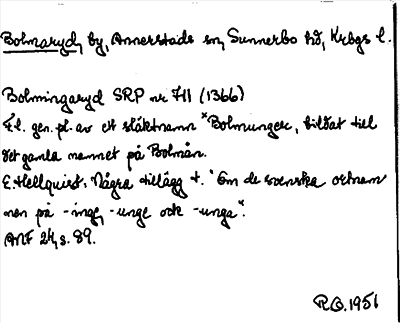 Bolmaryd, by, Annerstads sn, Sunnerbo hd, Krbgs l.
Bolmingaryd SRP nr 711 (1366)
F.l. gen. pl. av ett släktnamn *Bolmungar, bildat till
det gamla namnet på Bolmån.
E. Hellquist. Några tillägg t. "Om de svenska ortnam
nen på -inge, -unge ock -unga".
ANF 24, s. 89.
R.O. 1951